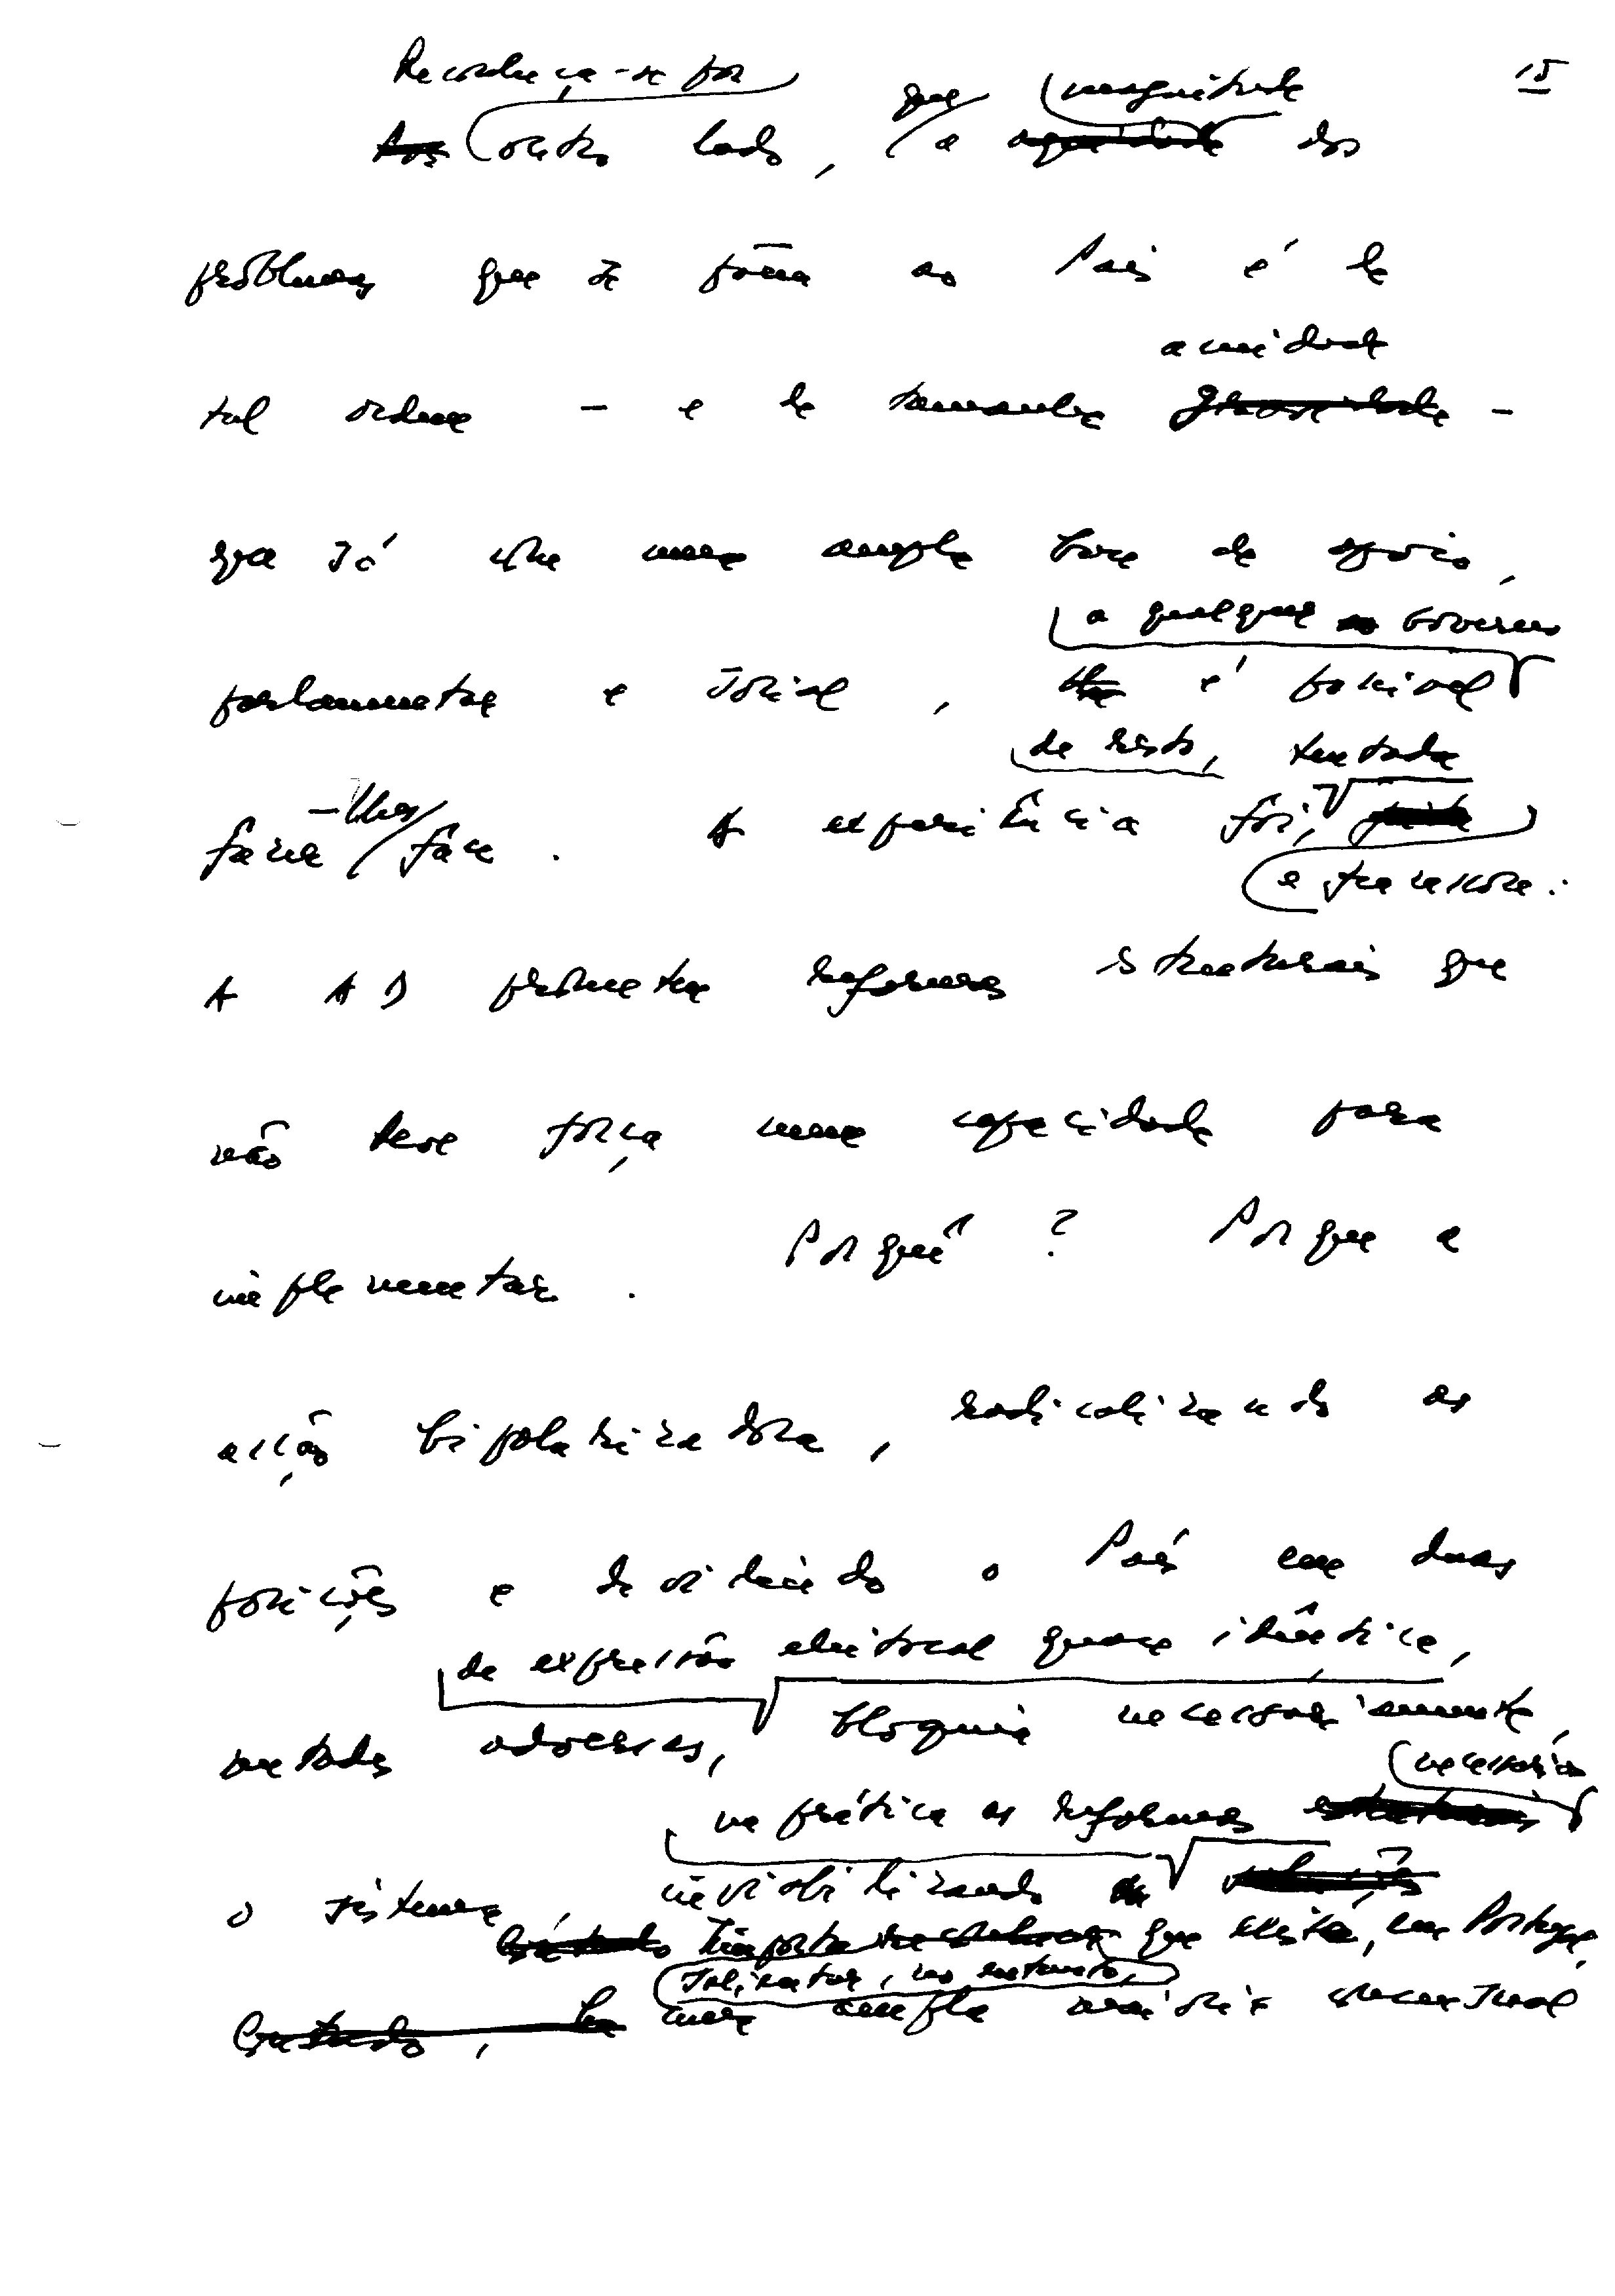 Reconheça-se por
15
que magnitude
Por outro lado, a agudeza dos
problemas que se põem ao País é de
acuidade
tal ordem - e de tamanha gravidade -
que só com uma ampla base de apoio,
a qualquer Governo
parlamentar e social, é possível
de resto, tentada
fazer-lhes face. A experiência foi,
e fracassou:
A AD prometeu reformas estruturais que
não teve força nem capacidade para
implementar. Porquê? Porque a
acção bipolarizadora, radicalizando as
posições e dividindo o País em duas
de expressão eleitoral quase idêntica,
metades adversas, bloqueia necessariamente,
necessárias
na prática as reformas estruturais
o sistema, inviabilizando as soluções
Contudo Importa que existe, em Portugal,
salientar, no entanto,
Contudo, há uma ampla maioria consensual